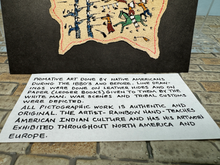 PRIMATIVE ART DONE BY NATIVE AMERICANS
DURING THE 1880'S AND BEFORE. LIKE DRAW-
INGS WERE DONE ON LEATHER HIDES AND ON
PAPER (LEDGER BOOKS) GIVEN TO THEM BY THE
WHITE MAN. WAR SCENES AND TRIBAL CUSTOMS
WERE DEPICTED.
ALL PICTOGRAPHIC WORK IS AUTHENTIC AND
ORIGINAL. THE ARTIST - RAINBOW HAND - TEACHES
AMERICAN INDIAN CULTURE AND HAS HIS ARTWORK
EXHIBITED THROUGHOUT NORTH AMERICA AND
EUROPE.